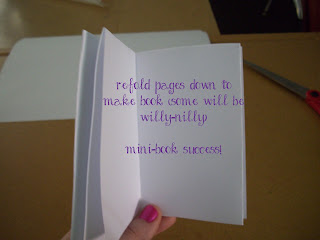 refold pages down to
make book (some will be
willy-nilly)
mini-book success!